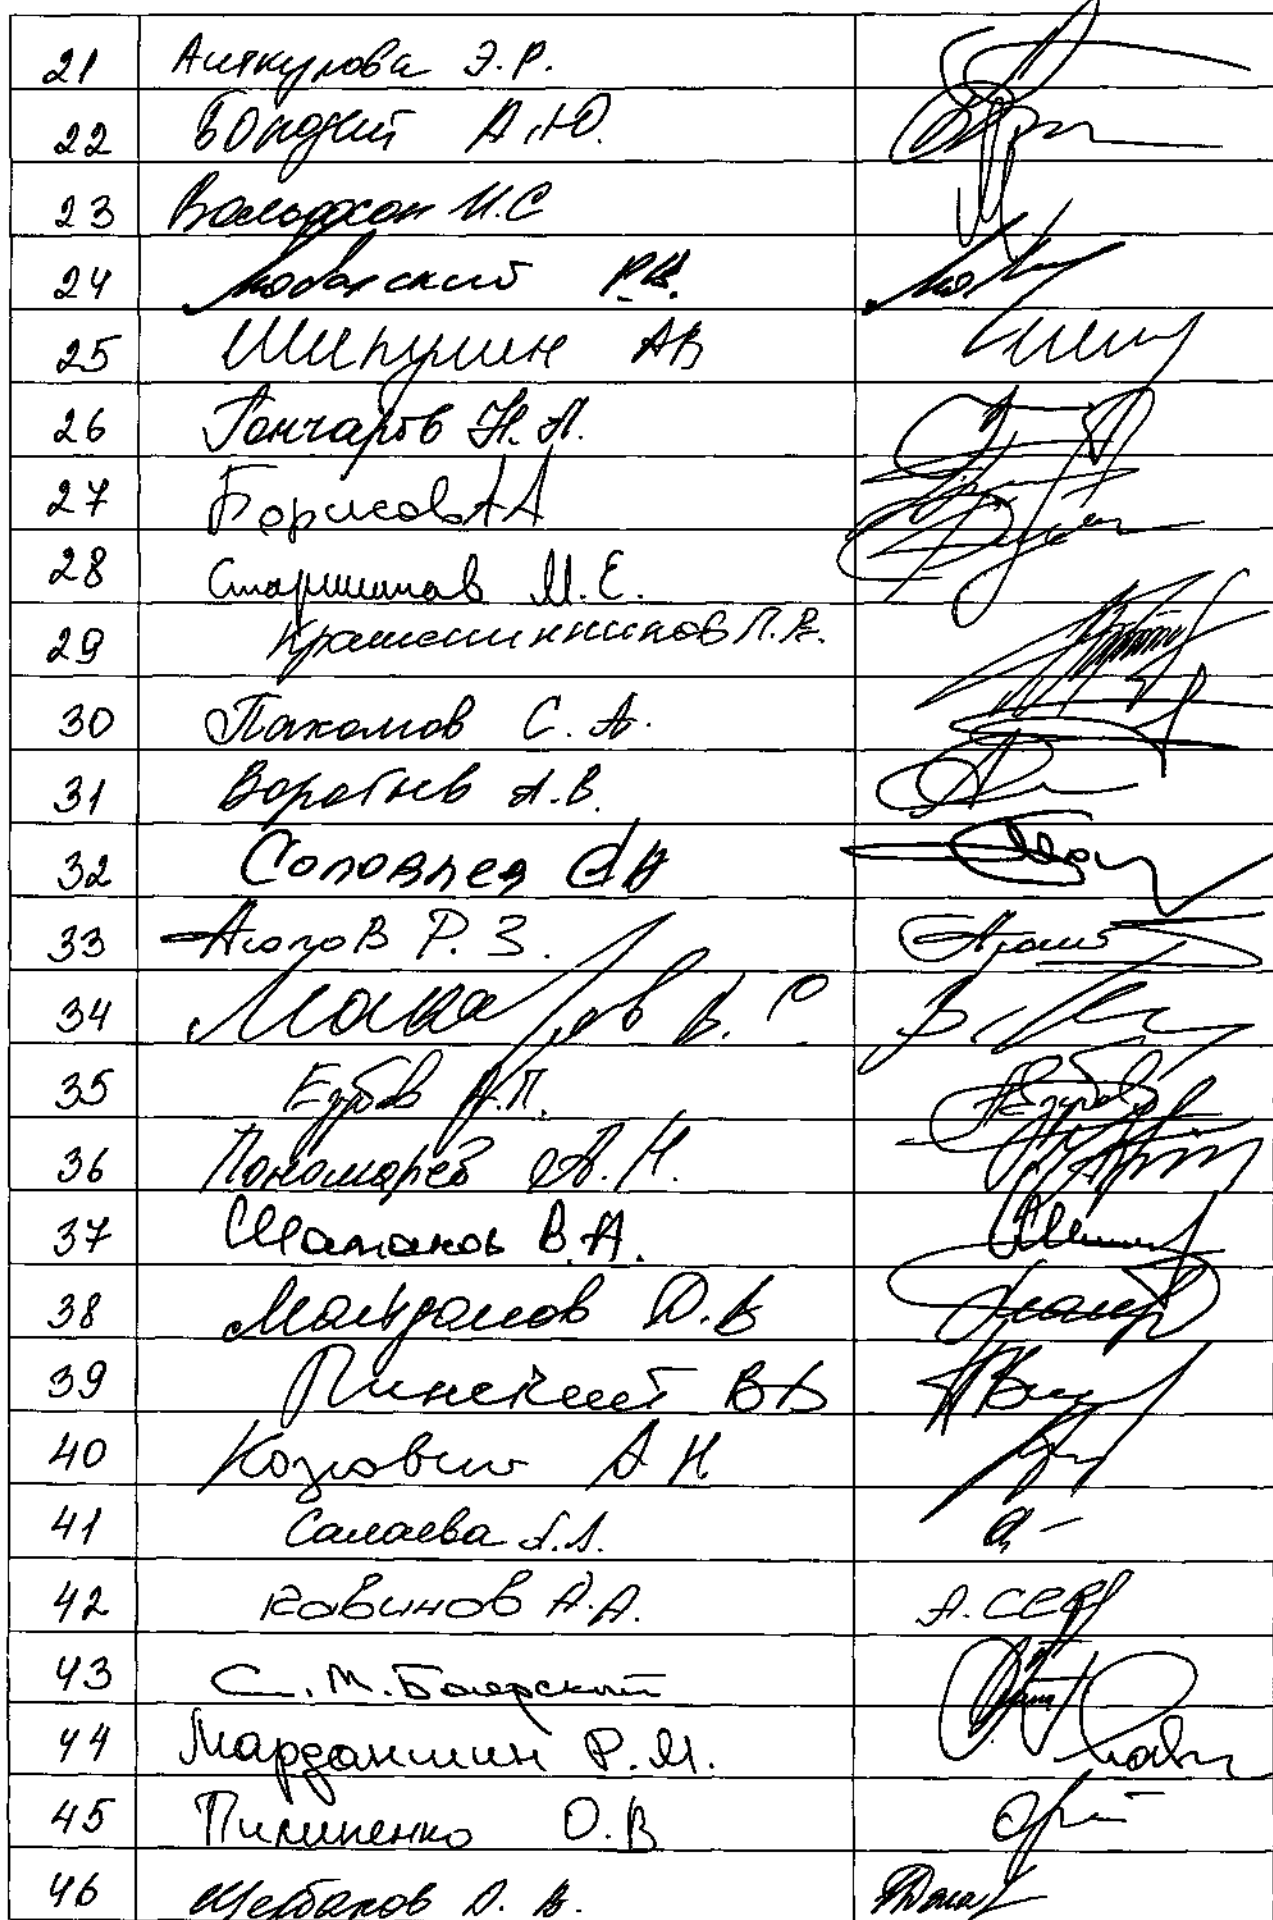 21 Аиткулова Э.Р.
22 Бондкит А.Ю.
23 Вольфсон И.С
24 Любарский Р.В.
25 Шипулин АВ
26 Гончаров Н.А.
27 Борисов А А
28 Старшинов М.Е.
29 Крашенинников П.В.
30 Пахомов С.А.
31 Воробьев А.В.
32 Соловьев С В
33 Аюпов Р.З.
34 Макаров В.С
35 Езубов А.П.
36 Пономарев А.Н.
37 Шаманов В.А.
38 Майданов Д.В
39 Пинский ВВ
40 Козловский А Н
41 Салаева А.Л.
42 Кавинов А.А.
43 С.М.Боярский
44 Марданшин Р.М.
45 Пилипенко О.В
46 Щербаков А.В.